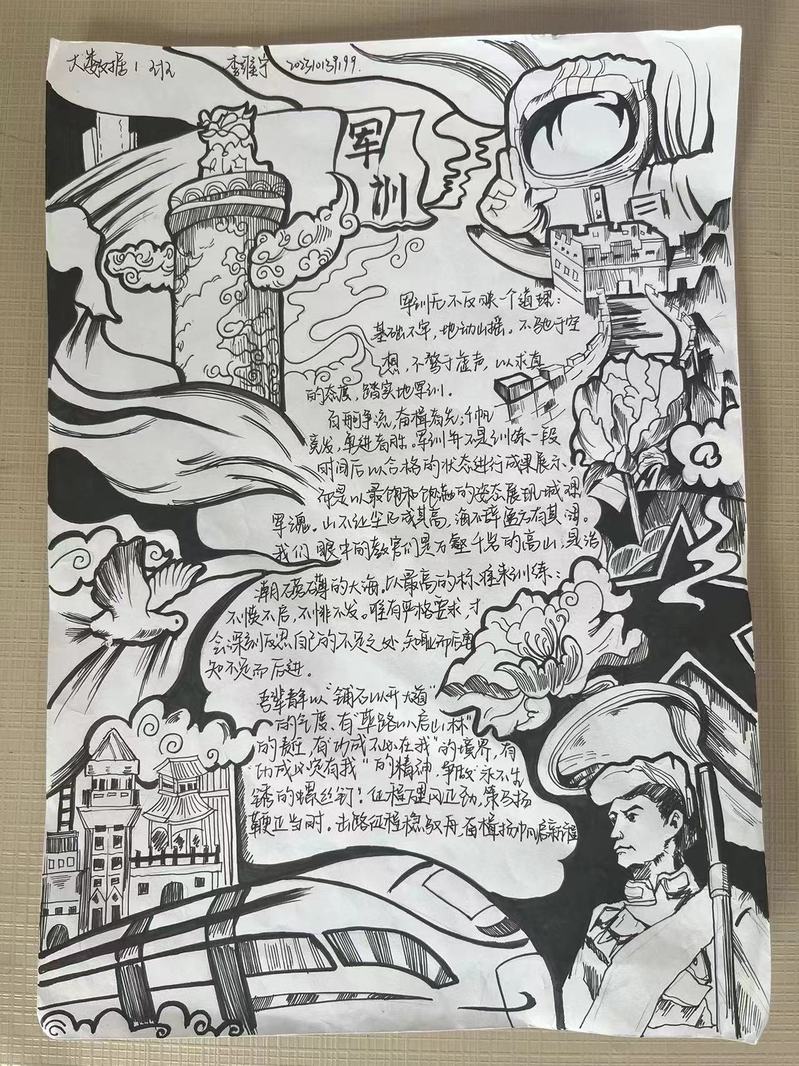 大数据1班 李 宁 2023101319199.
军训
军训无不反映一个道理：
基础不牢，地动山摇。不驰于空
想，不骛于虚声，以求真
的态度，踏实地军训。
百舸争流，奋楫者先；千帆
竞发，勇进者胜。军训并不是训练一段
时间后以合格的状态进行成果展示，
而是以最饱和饱満的姿态展现
军魂。山不纣尘已成其高，海不辞盈方有其阔。
我们眼中的教官们是万壑千岩的高山，是浩
潮磅礴的大海。以最高的标准来训练：
不愤不启，不悱不发。唯有严格要求，才
会深刻反思自己的不足之处，知耻而后勇
知不足而后进。
吾辈青年以"铺石以开大道"
的气度、有"筚路以启山林"
的责任，有"功成不必在我"的境界，有
"功成必定有我"的精神，争做永不生
锈的螺丝钉！征程万里风正劲，策马扬
鞭正当时。出路征程稳驭舟，奋楫扬帆启新程